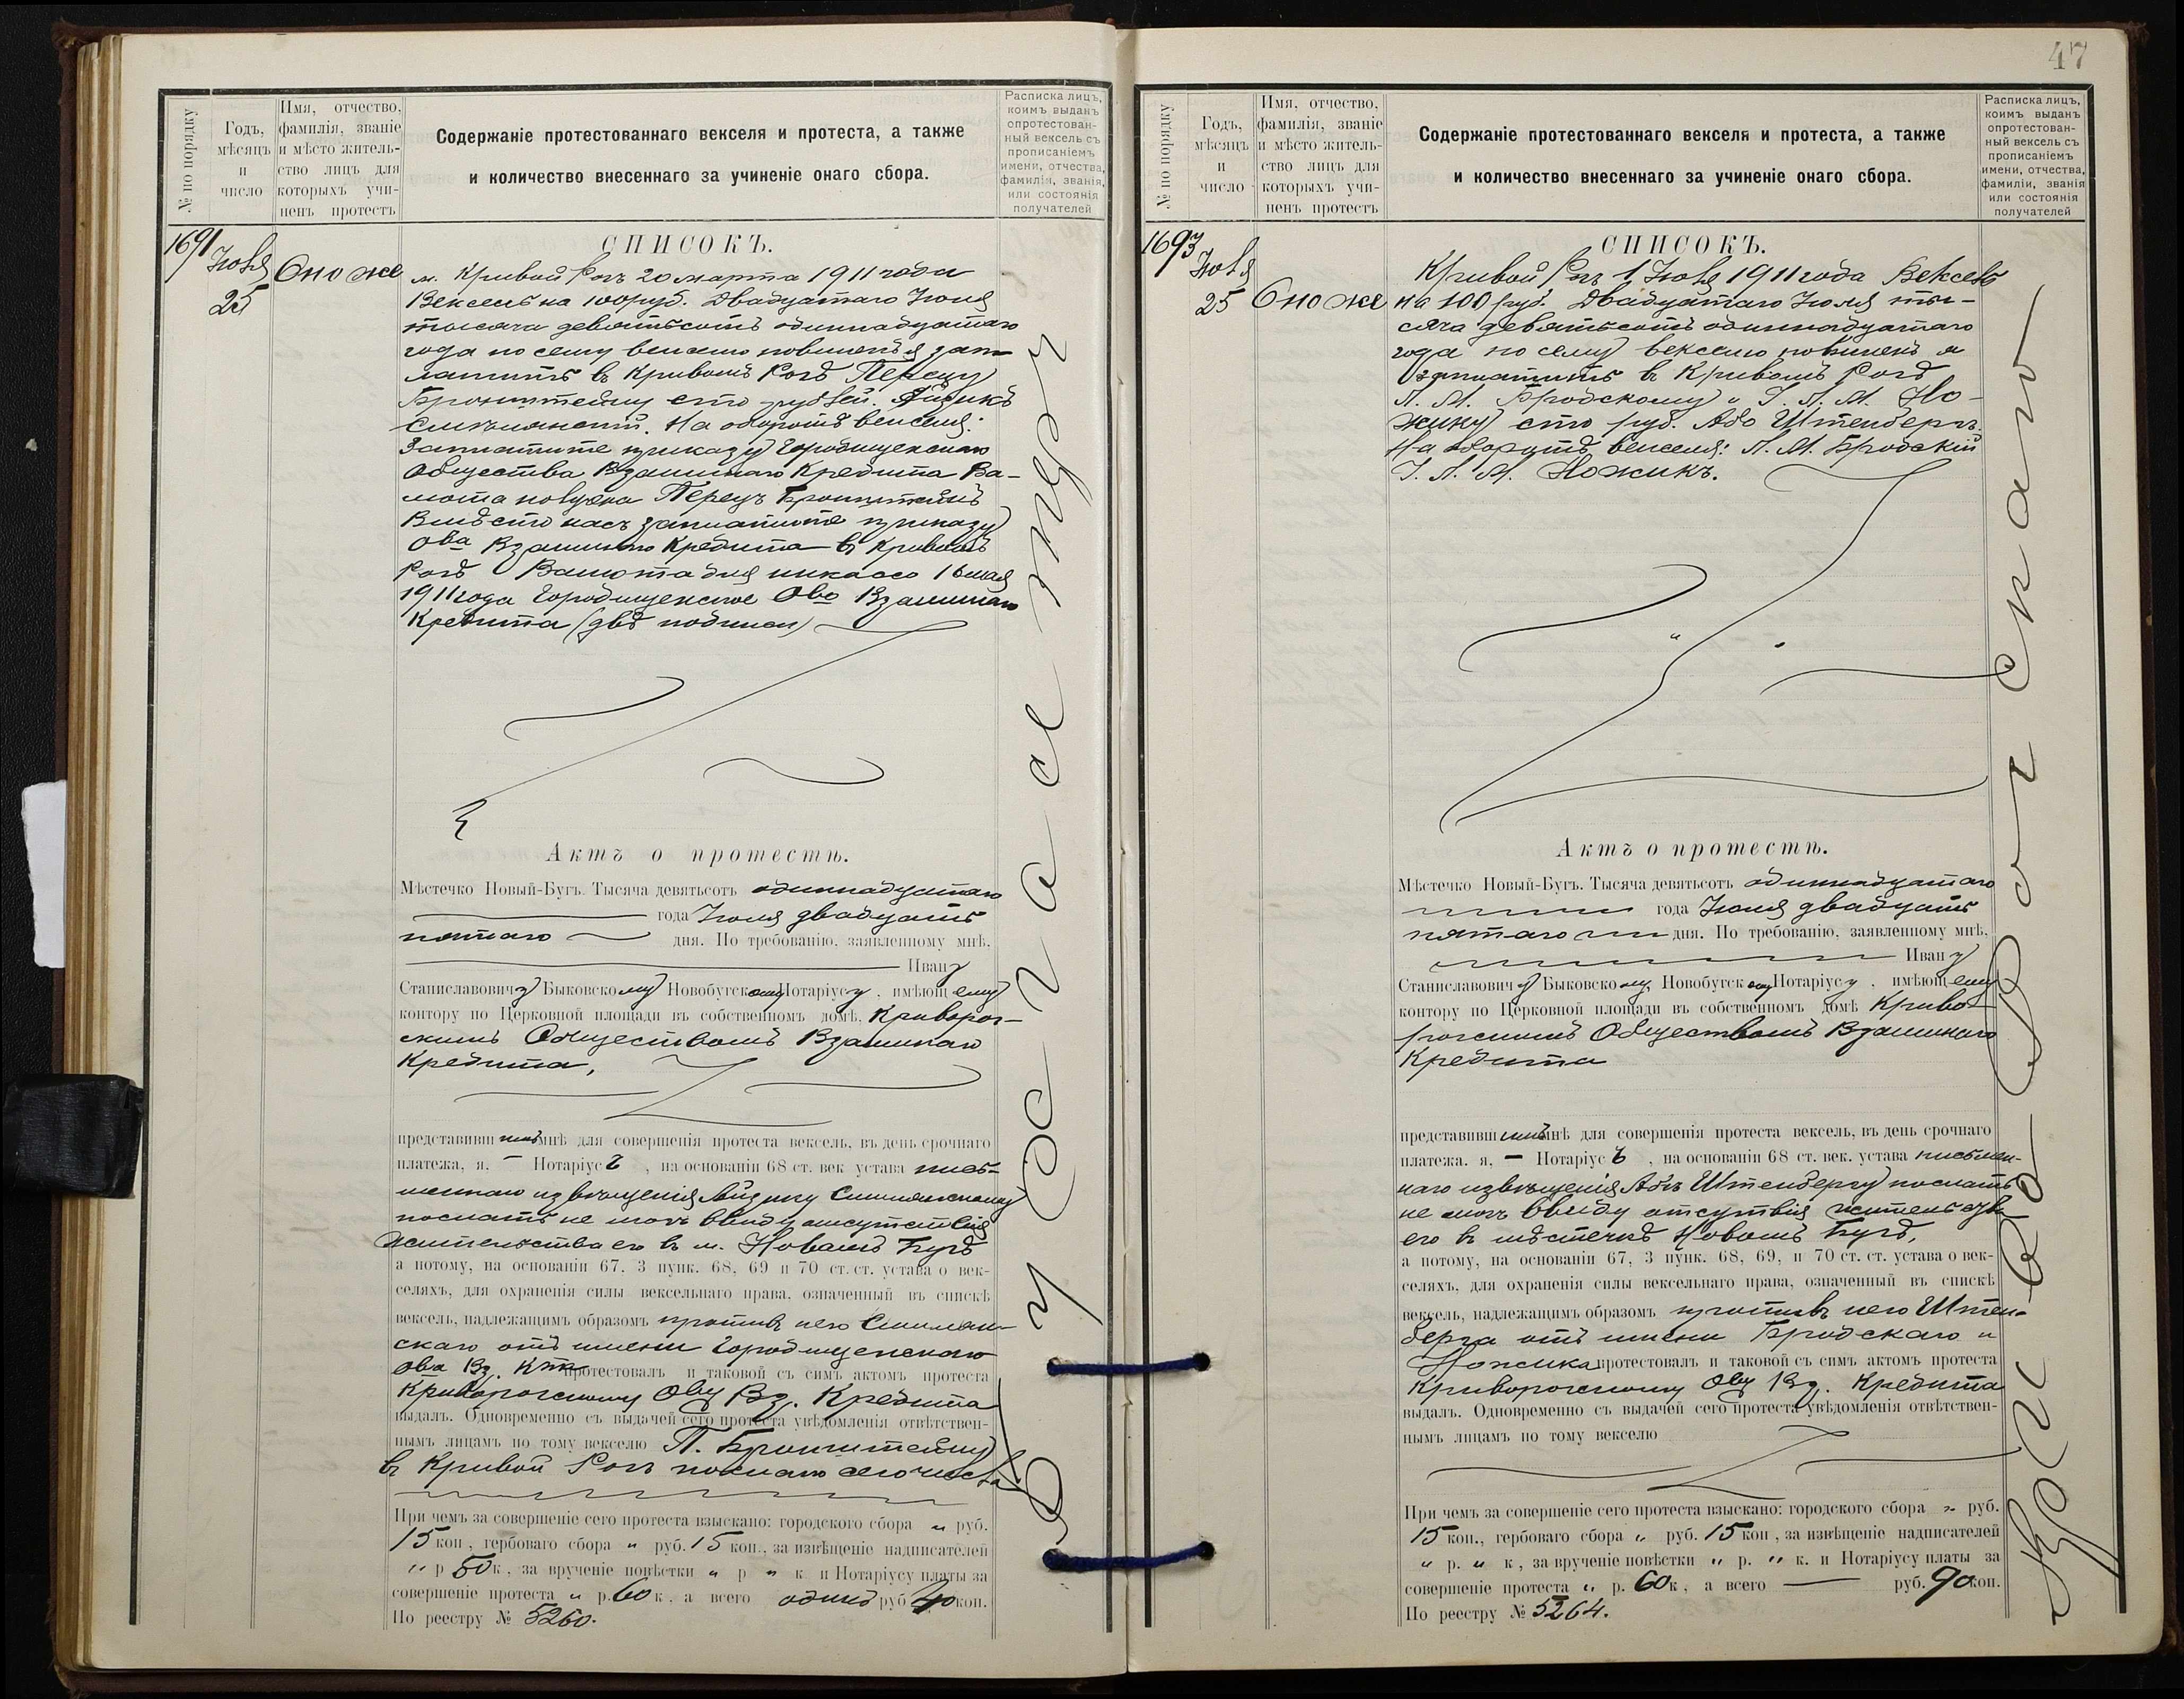 № по порядку
Годъ,
мѣсяцъ
и
число
Имя, отчество,
фамилія, званіе
и мѣсто житель-
ство лицъ для
которыхъ учи-
ненъ протестъ
Содержаніе протестованнаго векселя и протеста, а также
и количество внесеннаго за учиненіе онаго сбора.
Расписка лицъ,
коимъ выданъ
опротестован-
ный вексель съ
прописаніемъ
имени, отчества,
фамиліи, званія,
или состоянія
получателей
1691
Іюля
25
Оно же
СПИСОКЪ.
м. Кривой Рогъ 20 марта 1911 года
Вексель на 100 руб. Двадцатаго Іюля
тысяча девятьсотъ одиннадцатаго
года по сему векселю повиненъ я запла-
латить въ Кривомъ Рогѣ Перецу
Бронштейну сто рублей. Айзикъ
Смилянскій. На оборотѣ векселя:
Заплатите приказу Городищенскаго
Общества Взаимнаго Кредита Ва-
люта получена Перецъ Бронштейнъ
Вмѣсто насъ заплатите приказу
Ова Взаимнаго Кредита въ Кривомъ
Рогѣ Валюта для инкассо 16 мая
1911 года Городищенское Ово Взаимнаго
Кредита (двѣ подписи)
Актъ о протестѣ.
Мѣстечко Новый-Бугъ. Тысяча девятьсотъ одиннадцатаго
года Іюля двадцать
пятаго дня. По требованію, заявленному мнѣ,
Ивану
Станиславовичу Быковскому Новобугскому Нотаріусу, имѣющему
контору по Церковной площади въ собственномъ домѣ, Криворог-
скимъ Обществомъ Взаимнаго
Кредита,
представившимъ мнѣ для совершенія протеста вексель, въ день срочнаго
платежа, я, – Нотаріусъ, на основаніи 68 ст. век устава пись-
меннаго извѣщенія Айзику Смилянскому
послать не могъ ввиду отсутствія
жительства его въ м. Новомъ Бугѣ
а потому, на основаніи 67, 3 пунк. 68, 69 и 70 ст. ст. устава о век-
селяхъ, для охраненія силы вексельнаго права, означенный въ спискѣ
вексель, надлежащимъ образомъ противъ него Смилян-
скаго отъ имени Городищенскаго
Ова Вз. Кта протестовалъ и таковой съ симъ актомъ протеста
Криворогскому Обву Вз. Кредита
выдалъ. Одновременно съ выдачей сего протеста увѣдомленія отвѣтствен-
нымъ лицамъ по тому векселю П. Бронштейну
въ Кривой Рогъ послано сего числа
При чемъ за совершеніе сего протеста взыскано: городского сбора „ руб.
15 коп, гербоваго сбора „ руб. 15 коп., за извѣщеніе надписателей
„ р 50 к, за врученіе повѣстки „ р „ к. и Нотаріусу платы за
совершеніе протеста „ р. 60 к, а всего одинъ руб 40 коп.
По реестру № 5260.
47
№ по порядку
Годъ,
мѣсяцъ
и
число
Имя, отчество,
фамилія, званіе
и мѣсто житель-
ство лицъ для
которыхъ учи-
ненъ протестъ
Содержаніе протестованнаго векселя и протеста, а также
и количество внесеннаго за учиненіе онаго сбора.
Расписка лицъ,
коимъ выданъ
опротестован-
ный вексель съ
прописаніемъ
имени, отчества,
фамиліи, званія
или состоянія
получателей
1693
Іюля
25
Оно же
СПИСОКЪ.
Кривой Рогъ 1 Іюля 1911 года Вексель
на 100 руб. Двадцатаго Іюля ты-
сяча девятьсотъ одиннадцатаго
года по сему векселю повиненъ я
заплатить въ Кривомъ Рогѣ
Л. М. Бродскому и І. Л. М. Но-
жику сто руб. Або Штенбергъ.
На оборотѣ векселя: Л. М. Бродскій
І. Л. М. Ножикъ.
Актъ о протестѣ.
Мѣстечко Новый-Бугъ. Тысяча девятьсотъ одиннадцатаго
года Іюля двадцать
пятаго дня. По требованію, заявленному мнѣ,
Ивану
Станиславовичу Быковскому, Новобугскому Нотаріусу, имѣющему
контору по Церковной площади въ собственномъ домѣ Криво-
рогскимъ Обществомъ Взаимнаго
Кредита
представившимъ мнѣ для совершенія протеста вексель, въ день срочнаго
платежа. я, – Нотаріусъ, на основаніи 68 ст. век. устава письмен-
наго извѣщенія Абѣ Штенбергу послать
не могъ ввиду отсутствія жительства
его въ мѣстечкѣ Новомъ Бугѣ,
а потому, на основаніи 67, 3 пунк. 68, 69, и 70 ст. ст. устава о век-
селяхъ, для охраненія силы вексельнаго права, означенный въ спискѣ
вексель, надлежащимъ образомъ противъ него Штен-
берга отъ имени Бродскаго и
Ножика протестовалъ и таковой съ симъ актомъ протеста
Криворогскому Обву Вз. Кредита
выдалъ. Одновременно съ выдачей сего протеста увѣдомленія отвѣтствен-
нымъ лицамъ по тому векселю
При чемъ за совершеніе сего протеста взыскано: городского сбора „ руб.
15 коп., гербоваго сбора „ руб. 15 коп, за извѣщеніе надписателей
„ р. „ к, за врученіе повѣстки „ р. „ к. и Нотаріусу платы за
совершеніе протеста „ р. 60 к, а всего руб. 90 коп.
По реестру № 5264.